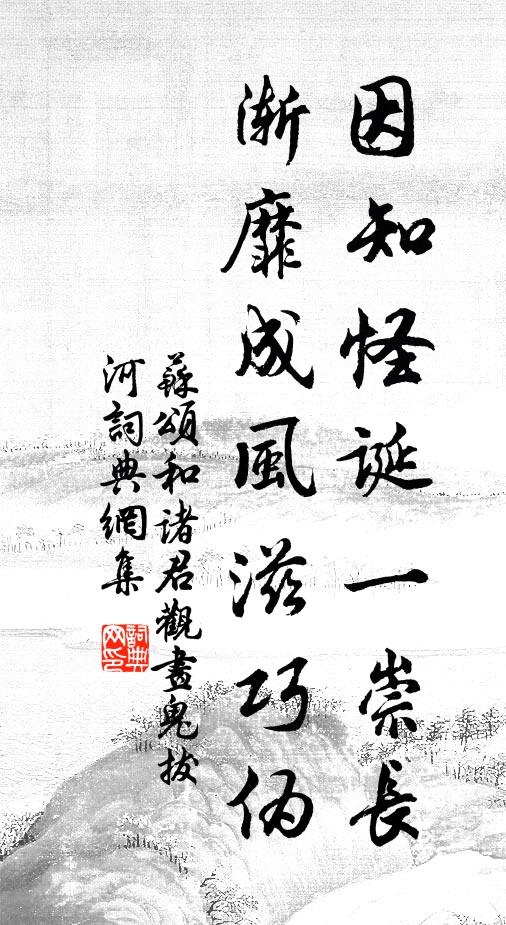 因知怪誕一崇長
漸靡成風滋巧偽
蘇頌和諸君觀畫鬼拔
河詞典網集
詞典
网印